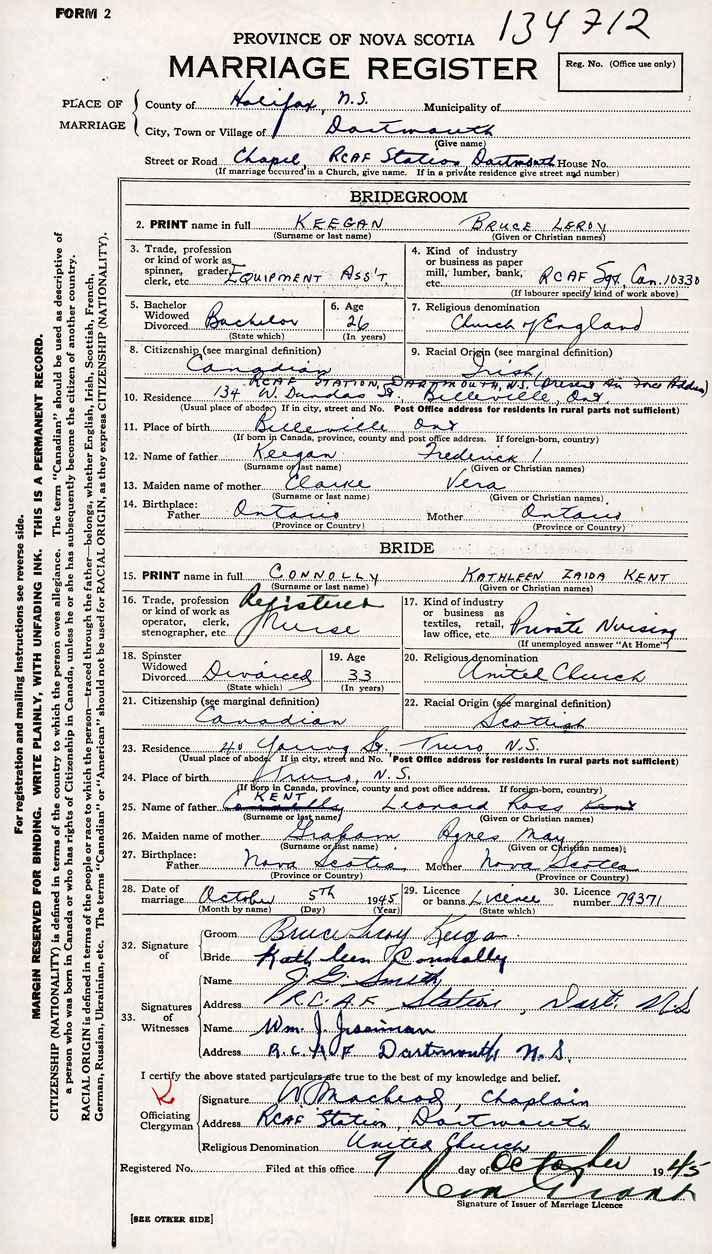 FORM 2
134712
PROVINCE OF NOVA SCOTIA
MARRIAGE REGISTER
Reg. No. (Office use only)
PLACE OF MARRIAGE
County of Halifax, N.S. Municipality of
City, Town or Village of Dartmouth
(Give name)
Street or Road Chapel, RCAF Station, Dartmouth House No.
(If marriage occurred in a Church, give name. If in a private residence give street and number)
BRIDEGROOM
2. PRINT name in full KEEGAN BRUCE LEROY
(Surname or last name) (Given or Christian names)
3. Trade, profession or kind of work as spinner, grader, clerk, etc. EQUIPMENT ASS'T.
4. Kind of industry or business as paper mill, lumber, bank, etc. RCAF Sgt, Can. 10330
(If labourer specify kind of work above)
5. Bachelor Widowed Divorced Bachelor
(State which)
6. Age 26
(In years)
7. Religious denomination
Church of England
8. Citizenship (see marginal definition)
Canadian
9. Racial Origin (see marginal definition)
Irish
RCAF STATION, DARTMOUTH, N.S. (Present Air Force Address)
10. Residence 134 W. Dundas St., Belleville, Ont.
(Usual place of abode) If in city, street and No. Post Office address for residents in rural parts not sufficient)
11. Place of birth Belleville Ont
(If born in Canada, province, county and post office address. If foreign-born, country)
12. Name of father Keegan Frederick
(Surname or last name) (Given or Christian names)
13. Maiden name of mother Clarke Vera
(Surname or last name) (Given or Christian names)
14. Birthplace: Father Ontario Mother Ontario
(Province or Country) (Province or Country)
BRIDE
15. PRINT name in full CONNOLLY KATHLEEN ZAIDA KENT
(Surname or last name) (Given or Christian names)
16. Trade, profession or kind of work as operator, clerk, stenographer, etc. Registered Nurse
17. Kind of industry or business as textiles, retail, law office, etc. Private Nursing
(If unemployed answer "At Home")
18. Spinster Widowed Divorced Divorced
(State which)
19. Age 33
(In years)
20. Religious denomination
United Church
21. Citizenship (see marginal definition)
Canadian
22. Racial Origin (see marginal definition)
Scottish
23. Residence 40 Young St., Truro N.S.
(Usual place of abode. If in city, street and No. Post Office address for residents in rural parts not sufficient)
24. Place of birth Truro, N.S.
(If Born in Canada, province, county and post office address. If foreign-born, country)
KENT
25. Name of father Leonard Ross Kent
(Surname or last name) (Given or Christian names)
26. Maiden name of mother Graham Agnes May
(Surname or last name) (Given or Christian names)
27. Birthplace: Father Nova Scotia Mother Nova Scotia
(Province or Country) (Province or Country)
28. Date of marriage October 5TH 1945
(Month by name) (Day) (Year)
29. Licence or banns Licence
(State which)
30. Licence number 79371
32. Signature of
Groom Bruce Leroy Keegan
Bride Kathleen Connolly
33. Signatures of Witnesses
Name J. G. Smith
Address R.C.A.F Station, Dart. N.S
Name Wm. J.
Address R.C.A.F Dartmouth N.S.
I certify the above stated particulars are true to the best of my knowledge and belief.
Officiating Clergyman
Signature W Macleod, Chaplain
Address RCAF Station, Dartmouth
Religious Denomination United Church
Registered No. Filed at this office 9 day of October 1945
Grant
Signature of Issuer of Marriage Licence
[SEE OTHER SIDE]
For registration and mailing instructions see reverse side.
MARGIN RESERVED FOR BINDING. WRITE PLAINLY, WITH UNFADING INK. THIS IS A PERMANENT RECORD.
CITIZENSHIP (NATIONALITY) is defined in terms of the country to which the person owes allegiance. The term "Canadian" should be used as descriptive of
a person who was born in Canada or who has rights of Citizenship in Canada, unless he or she has subsequently become the citizen of another country.
RACIAL ORIGIN is defined in terms of the people or race to which the person—traced through the father—belongs, whether English, Irish, Scottish, French,
German, Russian, Ukrainian, etc. The terms "Canadian" or "American" should not be used for RACIAL ORIGIN, as they express CITIZENSHIP (NATIONALITY).